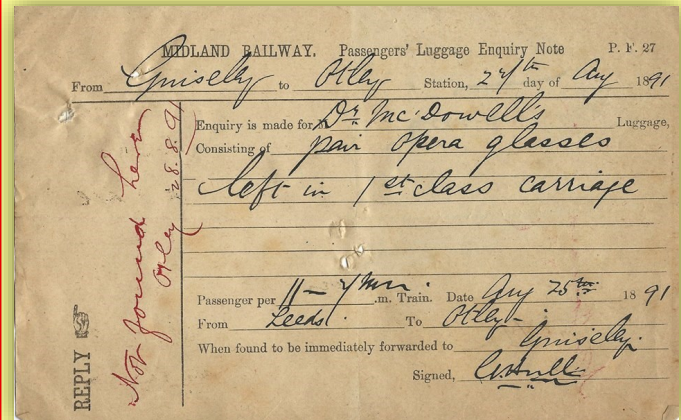 MIDLAND RAILWAY. Passengers' Luggage Enquiry Note P. F. 27
From Guiseley to Otley Station, day of Aug 1891
Enquiry is made for Dr McDowell's Luggage,
Consisting of pair opera glasses
left in 1st class carriage
Passenger per 11- .m. Train. Date Aug 25th 1891
From Leeds To Otley
When found to be immediately forwarded to Guiseley.
Signed,
REPLY
Not found here
Otley 28.8.91